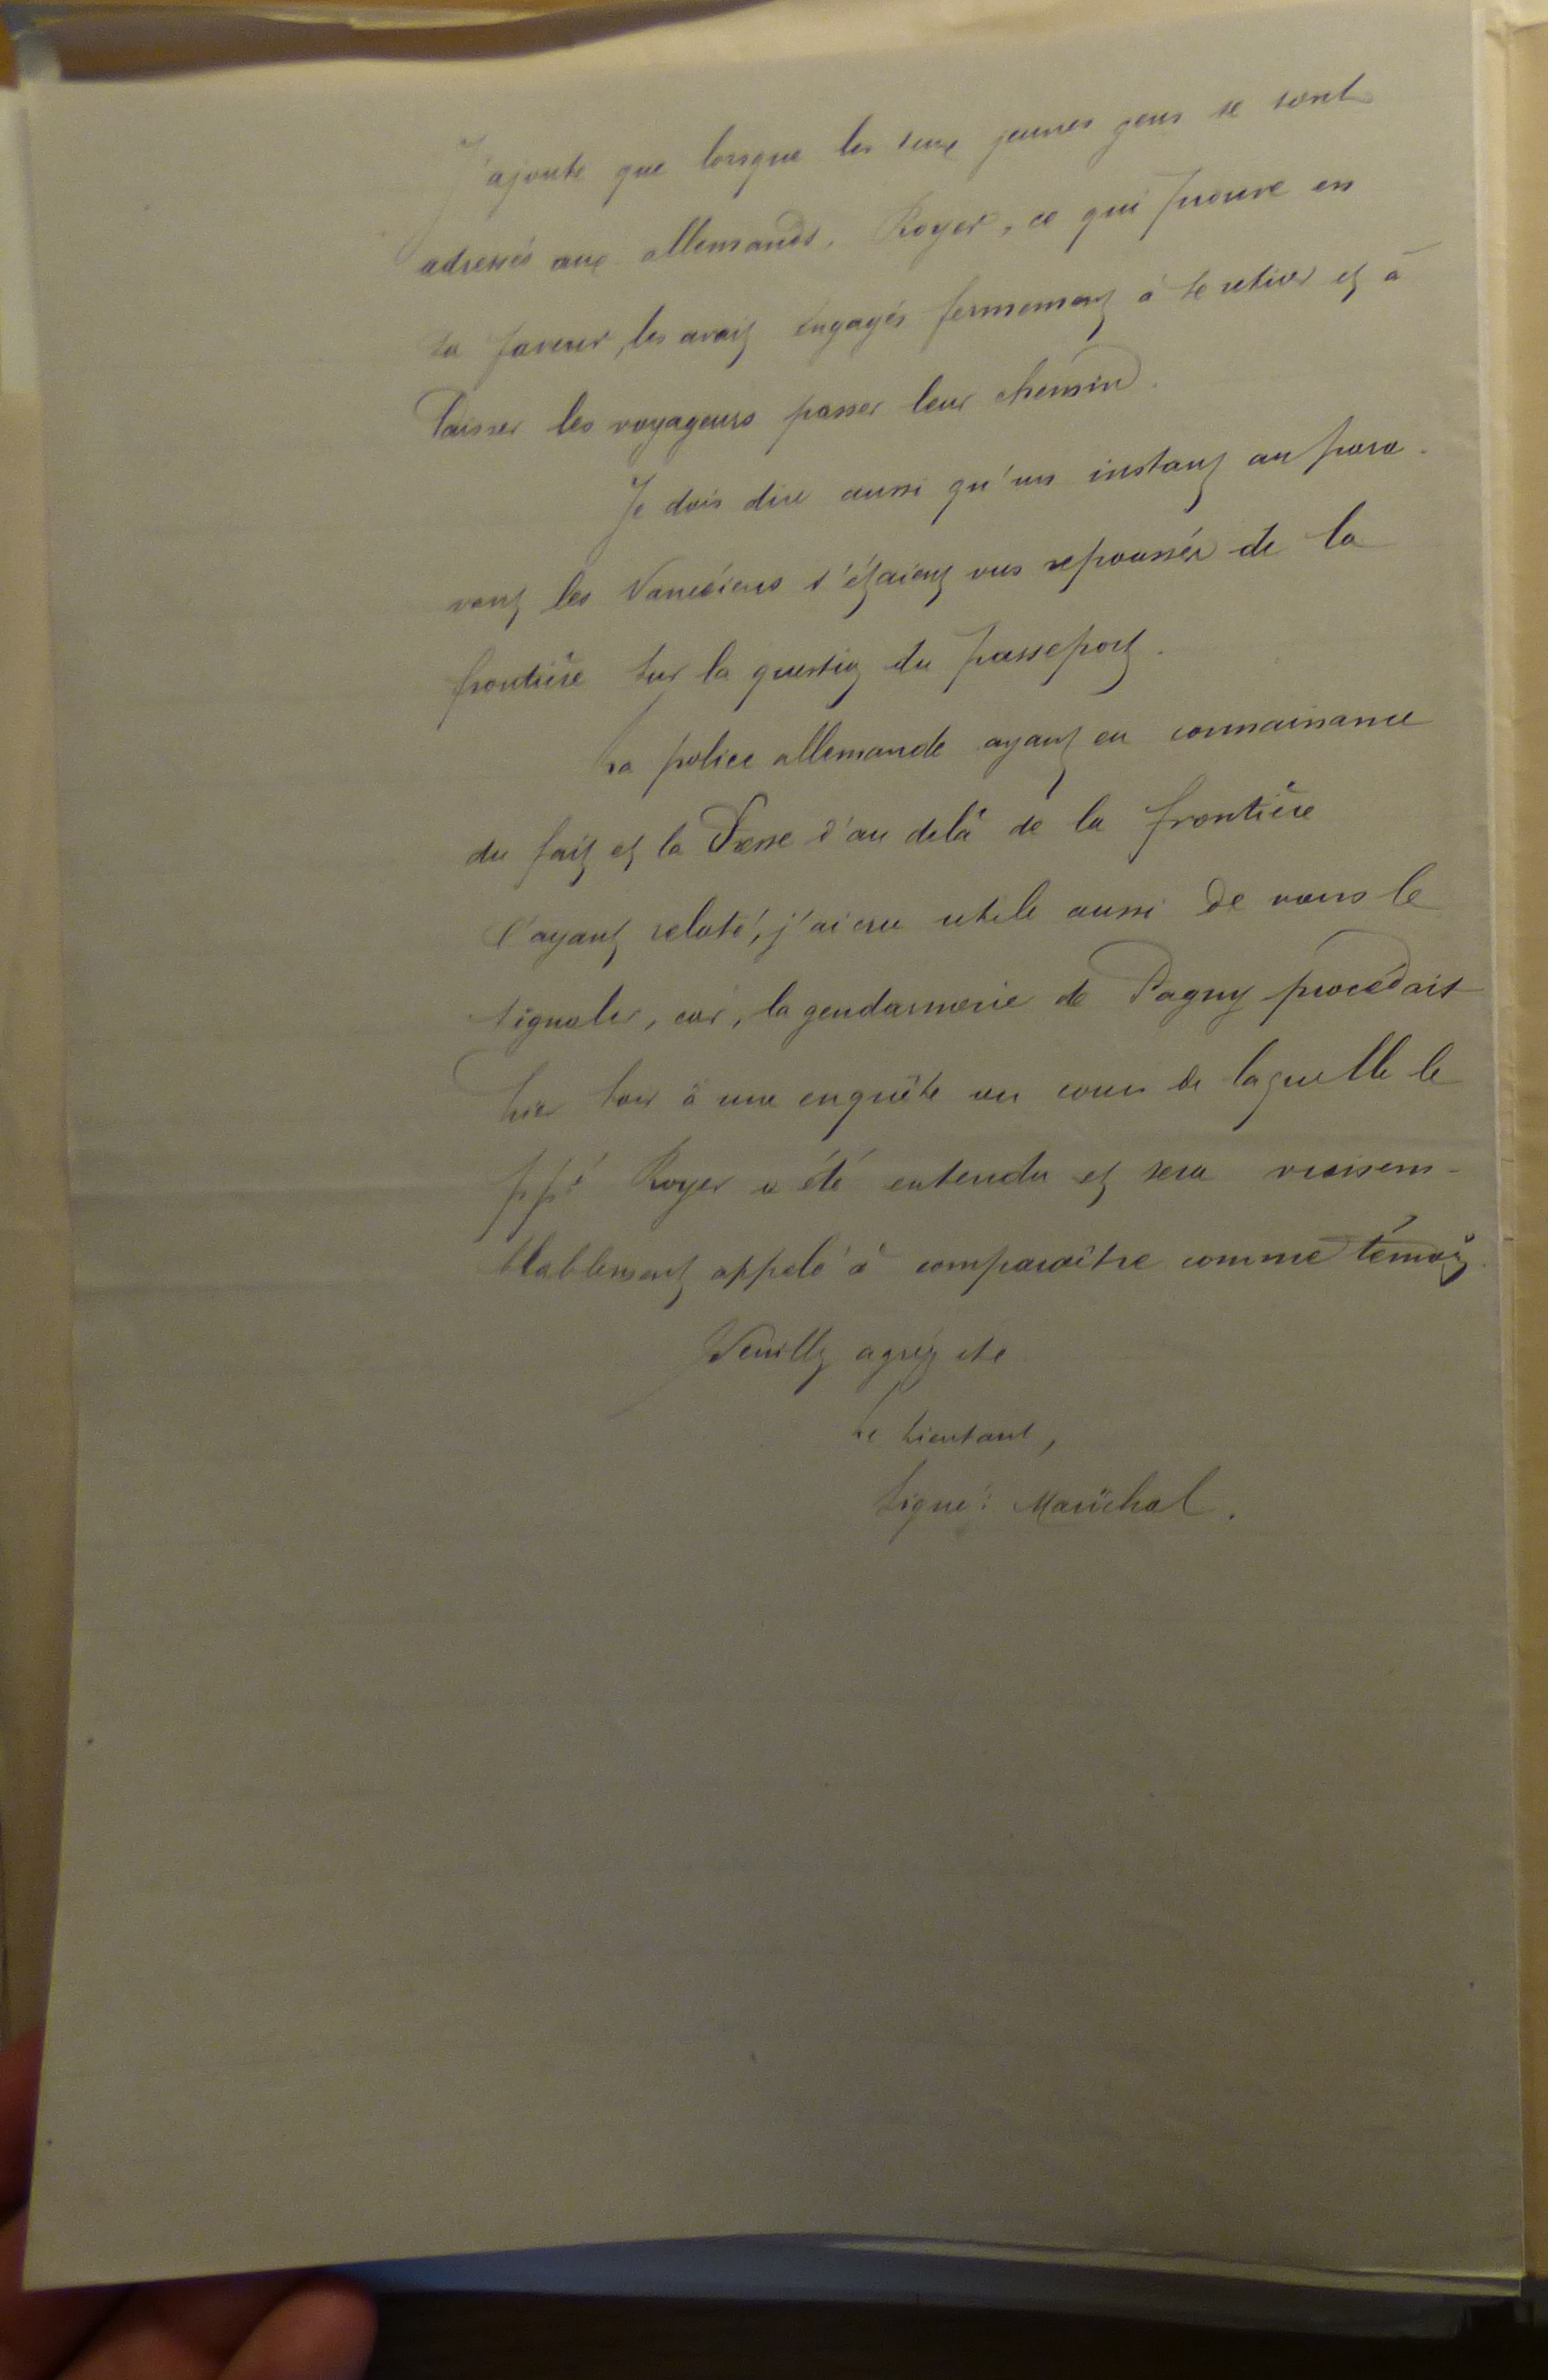 J'ajoute que lorsque les deux jeunes gens se sont
adressés aux allemands, Royer, ce qui prouve en
sa faveur, les avait engagés fermement à se retirer et à
laisser les voyageurs passer leur chemin.
Je dois dire aussi qu'un instant au para-
vant les Nancéiens s'étaient vus repoussés de la
frontière sur la question du passeport.
La police allemande ayant eu connaissance
du fait et la Presse d'au delà de la frontière
l'ayant relaté, j'ai cru utile aussi de vous le
signaler, car, la gendarmerie de Pagny procédait
hier soir à une enquête au cours de laquelle le
ppé Royer a été entendu et sera vraisem-
blablement appelé à comparaître comme témoin.
Veuillez agréez etc
Le Lieutant,
Signé: Maréchal.